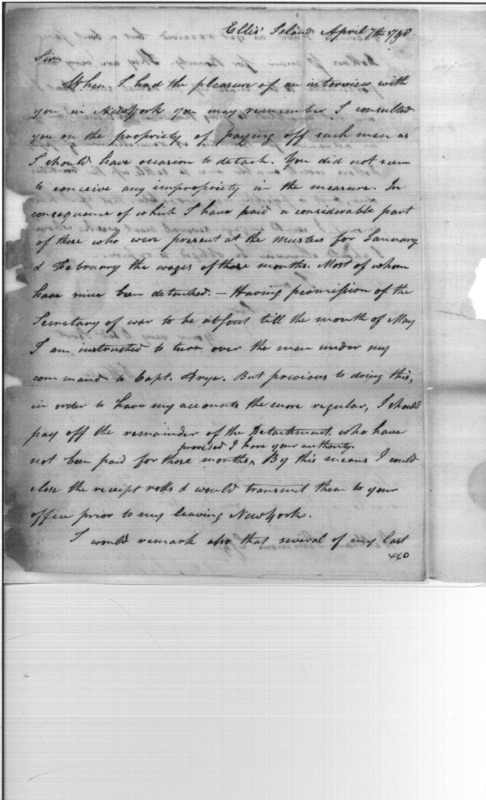 Ellis' Island April 7th 1798
Sir
When I had the pleasure of an interview with
you in NewYork you may remember I consulted
you on the propriety of paying off such men as
I should have occasion to detach. You did not seem
to conceive any impropriety in the measure. In
consequence of which I have paid a considerable part
of those who were present at the musters for January
& February the wages of those months. Most of whom
have since been detached. — Having permission of the
Secretary of war to be absent till the month of May
I am instructed to turn over the men under my
command to Capt. Frye. But previous to doing this,
in order to have my accounts the more regular, I should
pay off the remainder of the Detachment, who have
provided I have your authority.
not been paid for those months. By this means I could
close the receipt rolls & would transmit them to your
office prior to my leaving NewYork.
I would remark also that several of my last